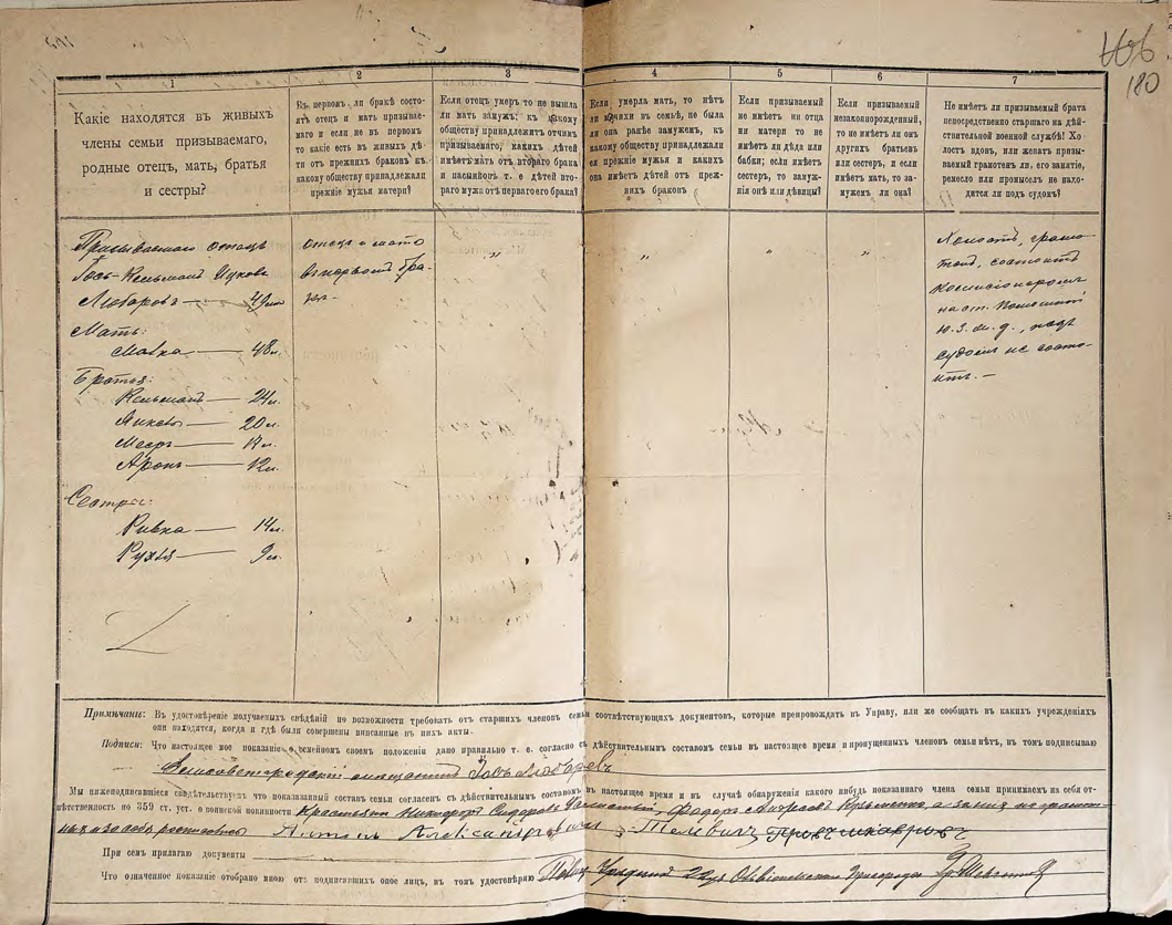 180
1
2
3
4
5
6
7
Какіе находятся въ живыхъ
члены семьи призываемаго,
родные отецъ, мать, братья
и сестры?
Въ первомъ ли бракѣ состо-
ятъ отецъ и мать призывае-
маго и если не въ первомъ
то какіе есть въ живыхъ дѣ-
ти отъ прежнихъ браковъ къ
какому обществу принадлежали
прежніе мужья матери?
Если отецъ умеръ то не вышла
ли мать замужъ; къ какому
обществу принадлежитъ отчимъ
призываемаго, какихъ дѣтей
имѣетъ мать отъ второго брака
и пасынковъ т. е. дѣтей вто-
раго мужа отъ перваго его брака?
Если умерла мать, то нѣтъ
ли мачихи въ семьѣ, не была
ли она ранѣе замужемъ, къ
какому обществу принадлежали
ея прежніе мужья и какихъ
она имѣетъ дѣтей отъ преж-
нихъ браковъ
Если призываемый
не имѣетъ ни отца
ни матери то не
имѣетъ ли дѣда или
бабки; если имѣетъ
сестеръ, то замуж-
нія онѣ или дѣвицы?
Если призываемый
незаконнорожденный,
то не имѣетъ ли онъ
другихъ братьевъ
или сестеръ, и если
имѣетъ мать, то за-
мужемъ ли она?
Не имѣетъ ли призываемый брата
непосредственно старшаго на дѣй-
ствительной военной службѣ? Хо-
лостъ вдовъ, или женатъ призы-
ваемый грамотенъ ли, его занятіе,
ремесло или промыселъ не нахо-
дится ли подъ судомъ?
Призываемаго отецъ
Іось-Кельманъ Ицковъ
Любаровъ — 49 лѣт
Мать:
Малка — 48 л.
Братья:
Кельманъ — 24 л.
Янкель — 20 л.
Мееръ — 17 л.
Аронъ — 12 л.
Сестры:
Ривка — 14 л.
Рухля — 9 л.
отецъ и мать
въ первомъ бра-
кѣ.
"
"
"
"
Холостъ, грамо-
тенъ, состоитъ
коммисіонеромъ
на ст. Помошной
Ю. З. ж. д., подъ
судомъ не состо-
итъ. —
Примѣчаніе: Въ удостовѣреніе получаемыхъ свѣдѣній по возможности требовать отъ старшихъ членовъ семьи соотвѣтствующихъ документовъ, которые препровождать въ Управу, или же сообщать въ какихъ учрежденіяхъ
они находятся, когда и гдѣ были совершены вписанные въ нихъ акты.
Подписи: Что настоящее мое показаніе о семейномъ своемъ положеніи дано правильно т. е. согласно съ дѣйствительнымъ составомъ семьи въ настоящее время и пропущенныхъ членовъ семьи нѣтъ, въ томъ подписываю
Елисаветградскій мѣщанинъ Іовъ Любаревъ
Мы нижеподписавшіеся свидѣтельствуемъ что показанный составъ семьи согласенъ съ дѣйствительнымъ составомъ въ настоящее время и въ случаѣ обнаруженія какого нибудь показаннаго члена семьи принимаемъ на себя от-
вѣтственность по 359 ст. уст. о воинской повинности Крестьяне Никифоръ Сидоровъ Федоръ Андреевъ Кузьменко, а за нихъ неграмот-
ныхъ и за себя росписался Антонъ Александровичъ
При семъ прилагаю документы
Что означенное показаніе отобрано мною отъ подписавшихъ оное лицъ, въ томъ удостовѣряю Урядникъ 22 уч.